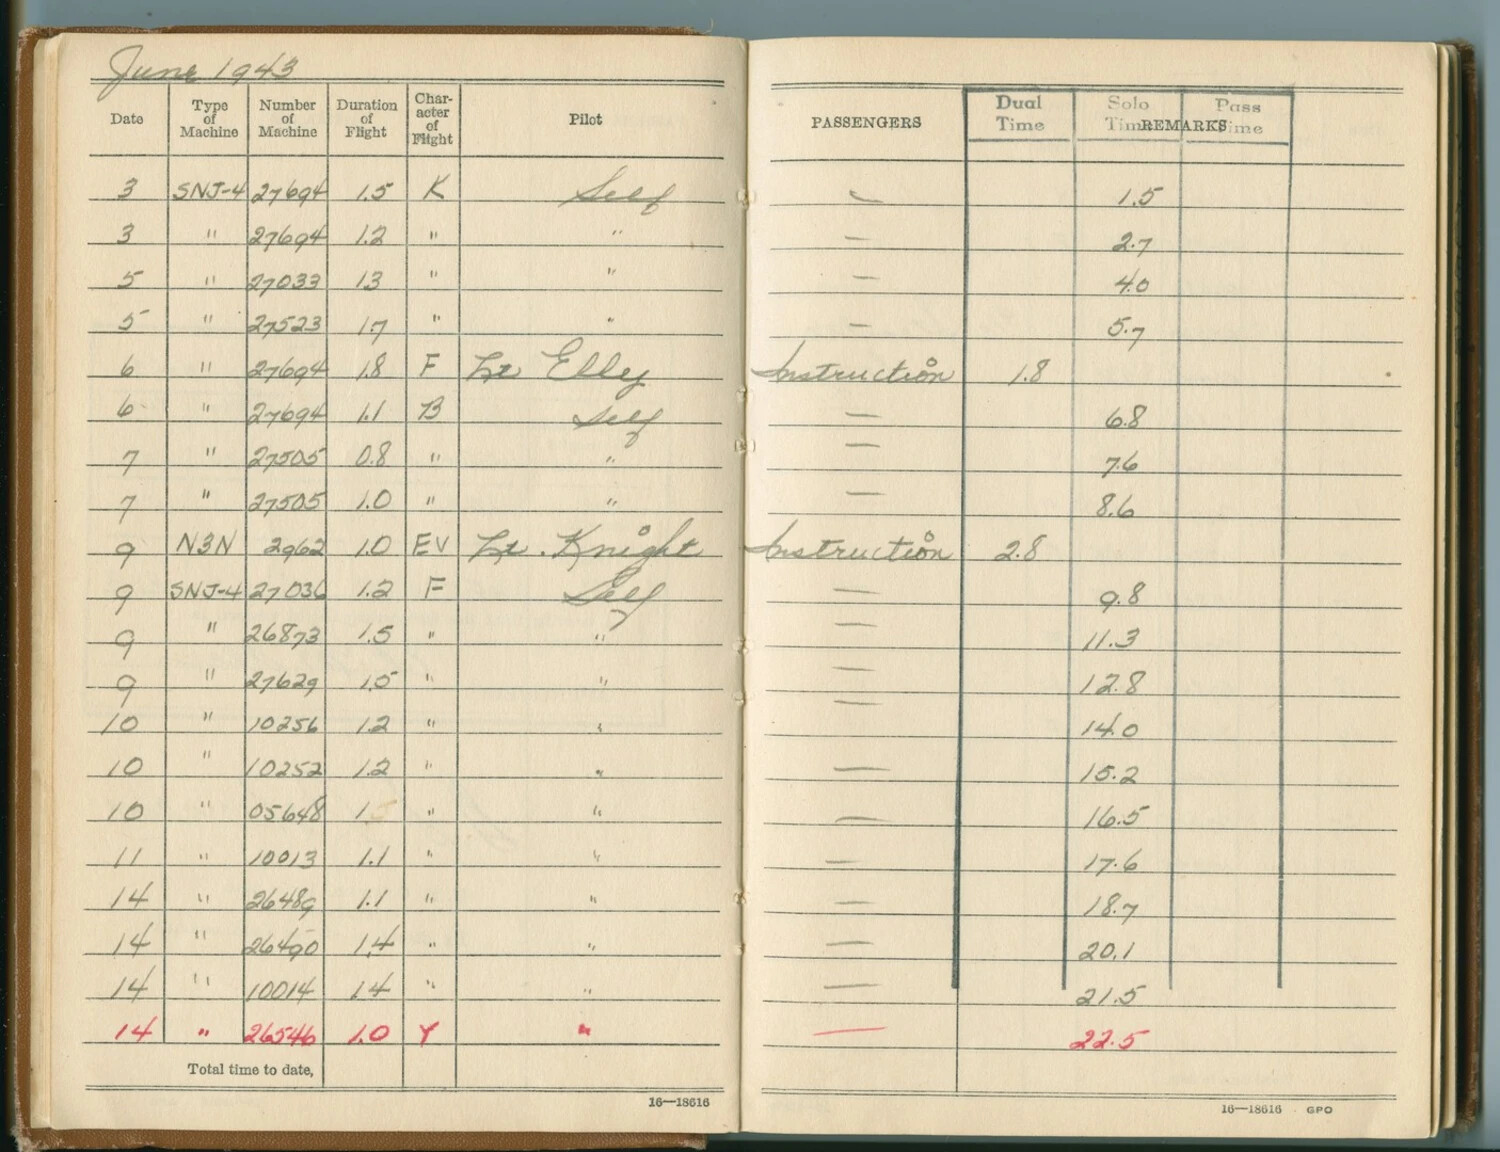 June 1943
Date Type of Machine Number of Machine Duration of Flight Char-acter of Flight Pilot PASSENGERS Dual Time Solo Time Pass Time REMARKS
3 SNJ-4 27694 1.5 K Self — 1.5
3 " 27694 1.2 " " — 2.7
5 " 27033 1.3 " " — 4.0
5 " 27523 1.7 " " — 5.7
6 " 27694 1.8 F Lt Elley Instruction 1.8
6 " 27694 1.1 B Self — 6.8
7 " 27505 0.8 " " — 7.6
7 " 27505 1.0 " " — 8.6
9 N3N 2962 1.0 EV Lt. Knight Instruction 2.8
9 SNJ-4 27036 1.2 F Self — 9.8
9 " 26873 1.5 " " — 11.3
9 " 27629 1.5 " " — 12.8
10 " 10256 1.2 " " — 14.0
10 " 10252 1.2 " " — 15.2
10 " 05648 " " — 16.5
11 " 10013 1.1 " " — 17.6
14 " 26489 1.1 " " — 18.7
14 " 26490 1.4 " " — 20.1
14 " 10014 1.4 " " — 21.5
14 " 26546 1.0 Y " — 22.5
Total time to date,
16—18616
16—18616 GPO